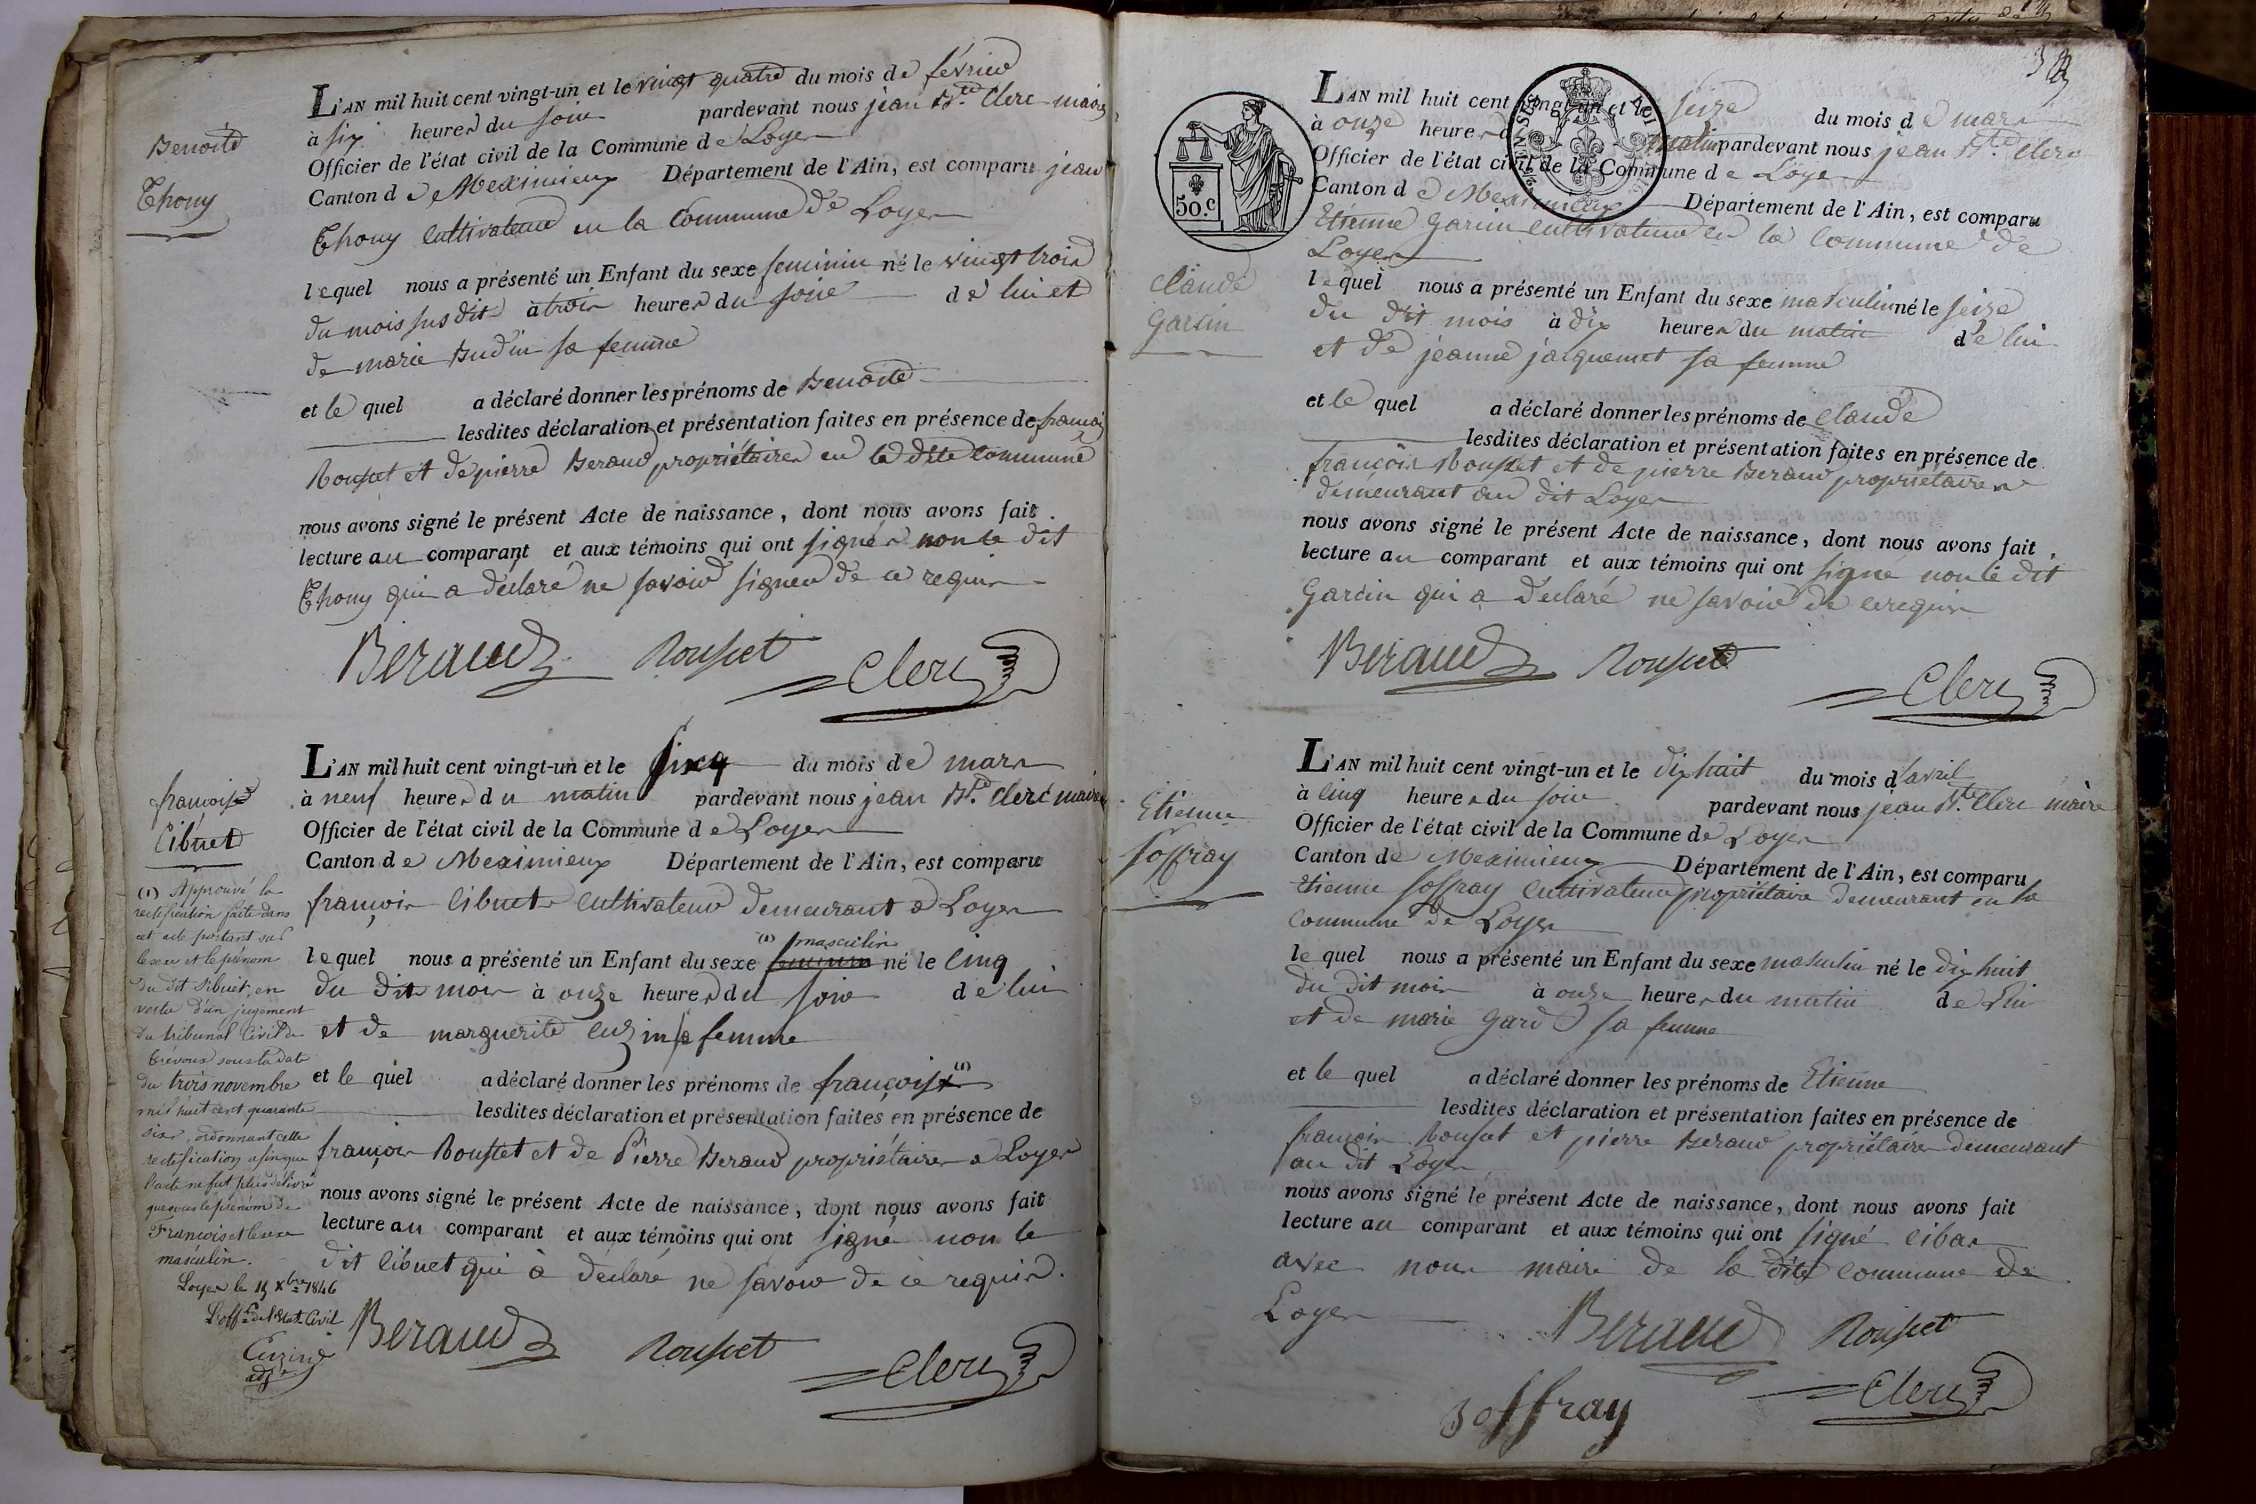 Benoite
Thony
L'AN mil huit cent vingt-un et le vingt quatre du mois de février
à six heures du soir pardevant nous jean Bte. Clerc maire
Officier de l'état civil de la Commune de Loyes
Canton de Meximieux Département de l'Ain, est comparu jean
Thony cultivateur en la Commune de Loyes
lequel nous a présenté un Enfant du sexe feminin né le vingt trois
du mois susdit à trois heures du soir de lui et
de marie Budin sa femme
et le quel a déclaré donner les prénoms de Benoite
lesdites déclaration et présentation faites en présence de françois
Rousset et de pierre Beraud propriétaires en la dite commune
nous avons signé le présent Acte de naissance, dont nous avons fait
lecture au comparant et aux témoins qui ont signés non le dit
Thony qui a déclaré ne savoir signer de ce requis
Beraud Rousset Clerc
françoise
Cibuet
L'AN mil huit cent vingt-un et le six du mois de mars
à neuf heures du matin pardevant nous jean Bte. Clerc maire
Officier de l'état civil de la Commune de Loyes
Canton de Meximieux Département de l'Ain, est comparu
françois Cibuet cultivateur demeurant a Loyes
(1) masculin
lequel nous a présenté un Enfant du sexe feminin né le cinq
du dit mois à onze heures du soir de lui
et de marguerite Cuzin sa femme
et le quel a déclaré donner les prénoms de françoise (1)
lesdites déclaration et présentation faites en présence de
françois Rousset et de Pierre Beraud propriétaires a Loyes
nous avons signé le présent Acte de naissance, dont nous avons fait
lecture au comparant et aux témoins qui ont signé non le
dit Cibuet qui à déclaré ne savoir de ce requis.
Beraud Rousset Clerc
(1) Approuvé la
rectification faite dans
cet acte portant sur
le sexe et le prénom
du dit Cibuet, en
vertu d'un jugement
du tribunal Civil de
Trévoux sous la date
du trois novembre
mil huit cent quarante
six, ordonnant cette
rectification afin que
l'acte ne fut plus délivré
que sous le prénom de
François et le sexe
masculin.
Loyes le 15 Xbre 1846
L'off. de l'Etat Civil
Cuzin
adjt
L'AN mil huit cent vingt-un et le seize du mois de mars
à onze heures du matin pardevant nous jean Bte. Clerc
Officier de l'état civil de la Commune de Loyes
Canton de Meximieux Département de l'Ain, est comparu
Etienne Garcin cultivateur en la commune de
Loyes
50.c
Claude
Garcin
lequel nous a présenté un Enfant du sexe masculin né le seize
du dit mois à dix heures du matin de lui
et de jeanne jacquemet sa femme
et le quel a déclaré donner les prénoms de Claude
lesdites déclaration et présentation faites en présence de
françois Rousset et de pierre Beraud propriétaires
demeurant au dit Loyes
nous avons signé le présent Acte de naissance, dont nous avons fait
lecture au comparant et aux témoins qui ont signé non le dit
Garcin qui a déclaré ne savoir de ce requis
Beraud Rousset Clerc
Etienne
Soffray
L'AN mil huit cent vingt-un et le dix huit du mois d'avril
à cinq heures du soir pardevant nous jean Bte. Clerc maire
Officier de l'état civil de la Commune de Loyes
Canton de Meximieux Département de l'Ain, est comparu
Etienne Soffray cultivateur propriétaire demeurant en la
commune de Loyes
le quel nous a présenté un Enfant du sexe masculin né le dix huit
du dit mois à onze heures du matin de lui
et de marie Gard sa femme
et le quel a déclaré donner les prénoms de Etienne
lesdites déclaration et présentation faites en présence de
françois Rousset et pierre Beraud propriétaires demeurant
au dit Loyes
nous avons signé le présent Acte de naissance, dont nous avons fait
lecture au comparant et aux témoins qui ont signé
avec nous maire de la dite commune de
Loyes
Beraud Rousset
Clerc
Soffray